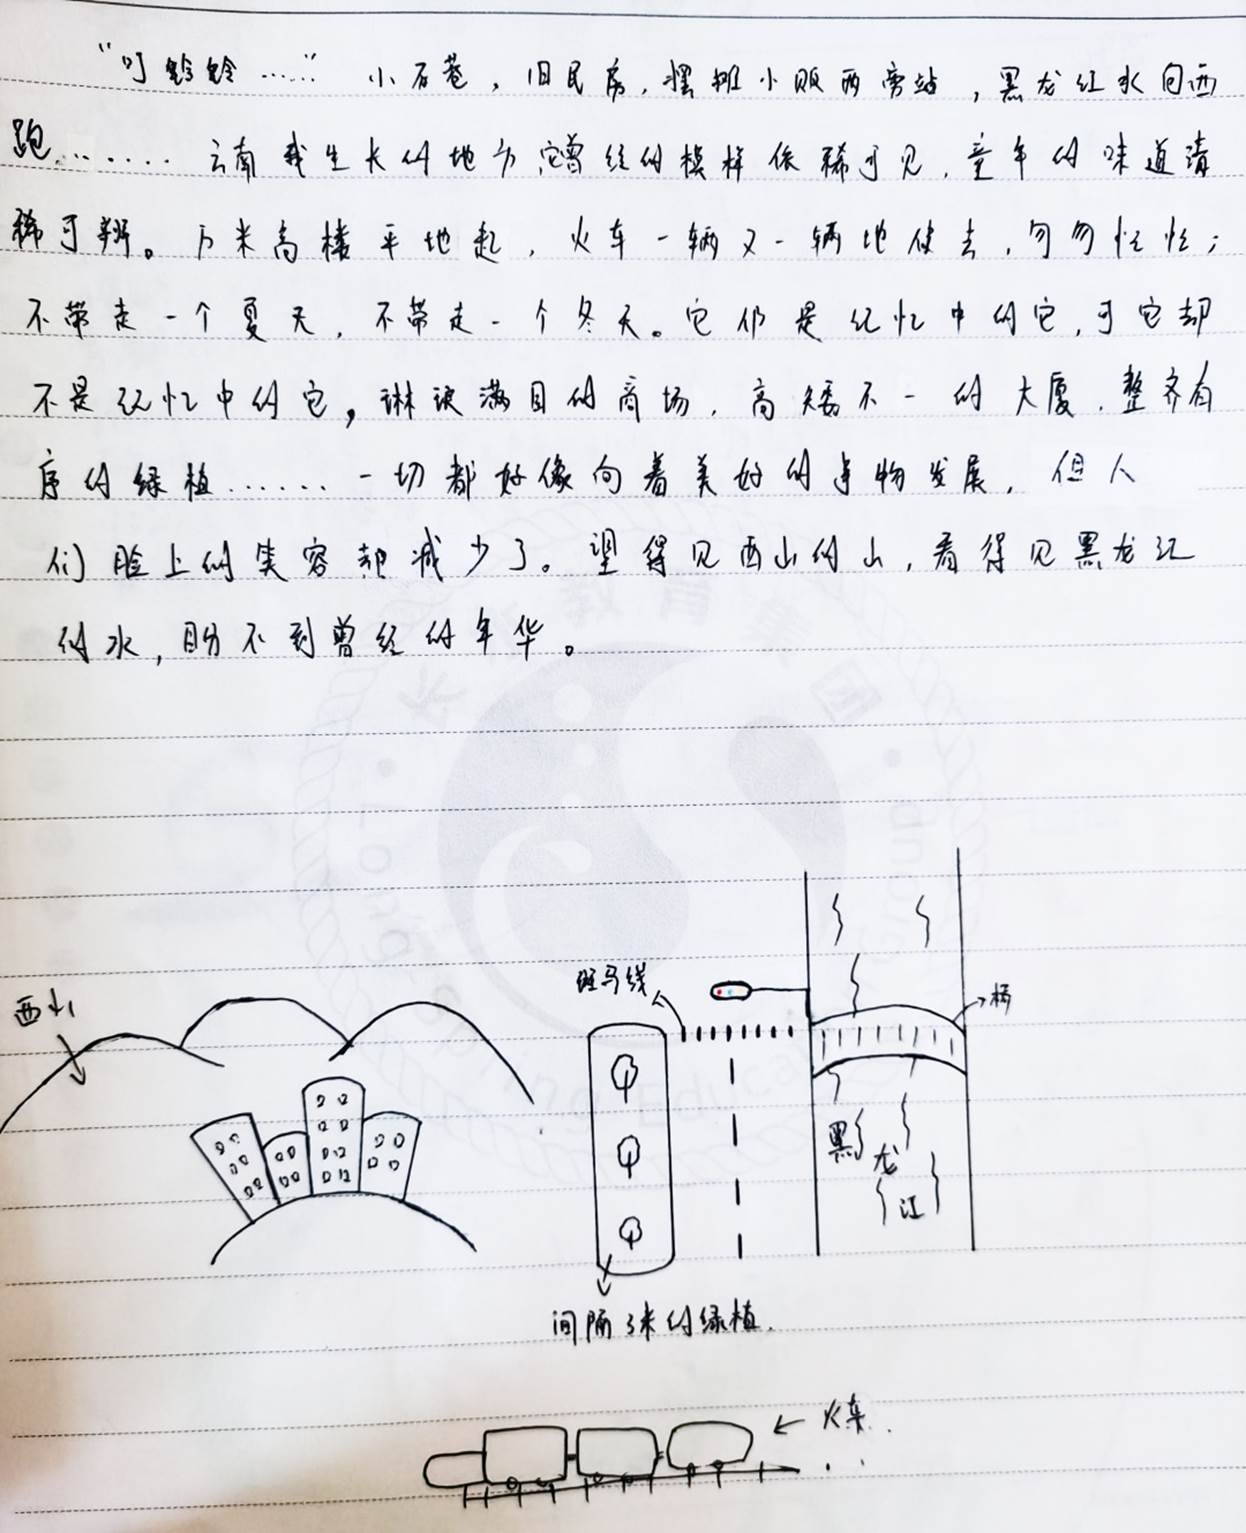 “叮铃铃……” 小石巷，旧民房，摆摊小贩两旁站，黑龙江水向西
跑……… 云南我生长的地方，它曾经的模样依稀可见，童年的味道清
稀可辨。万米高楼平地起，火车一辆又一辆地使去，匆匆忙忙；
不带走一个夏天，不带走一个冬天。它仍是记忆中的它，可它却
不是记忆中的它，琳琅满目的商场，高矮不一的大厦，整齐有
序的绿植……一切都好像向着美好的事物发展，但人
们脸上的笑容却减少了。望得见西山的山，看得见黑龙江
的水，盼不到曾经的年华。
长水教育集团
西山
斑马线
桥
黑龙江
间隔3米的绿植.
火车.